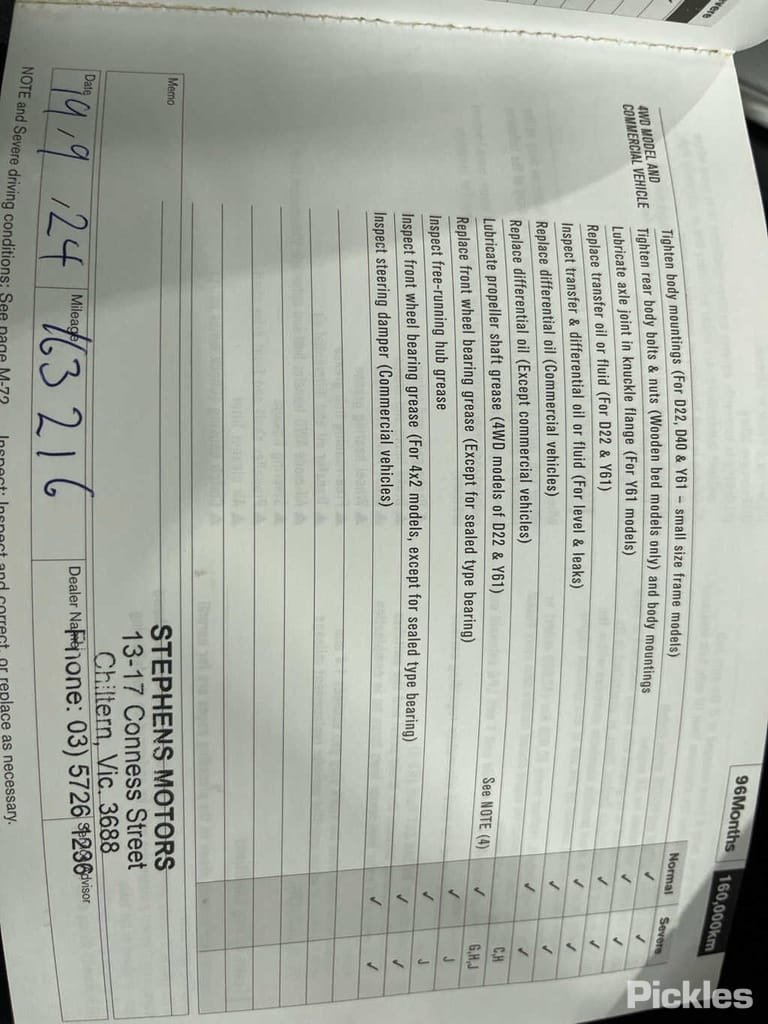 vere
96Months 160,000km
Normal Severe
4WD MODEL AND
COMMERCIAL VEHICLE
Tighten body mountings (For D22, D40 & Y61 – small size frame models) ✓ ✓
Tighten rear body bolts & nuts (Wooden bed models only) and body mountings ✓ ✓
Lubricate axle joint in knuckle flange (For Y61 models) ✓ ✓
Replace transfer oil or fluid (For D22 & Y61) ✓ ✓
Inspect transfer & differential oil or fluid (For level & leaks) ✓ ✓
Replace differential oil (Commercial vehicles) ✓ ✓
Replace differential oil (Except commercial vehicles) C,H
Lubricate propeller shaft grease (4WD models of D22 & Y61) See NOTE (4) ✓ G,H,J
Replace front wheel bearing grease (Except for sealed type bearing) ✓ J
Inspect free-running hub grease ✓ J
Inspect front wheel bearing grease (For 4x2 models, except for sealed type bearing) ✓ ✓
Inspect steering damper (Commercial vehicles) ✓ ✓
Memo
STEPHENS MOTORS
13-17 Conness Street
Chiltern, Vic. 3688
Phone: 03) 5726 1236
Date 19/9/24 Mileage 163 216 Dealer Name
NOTE and Severe driving conditions: See page M-72 Inspect: Inspect and correct, or replace as necessary.
Pickles